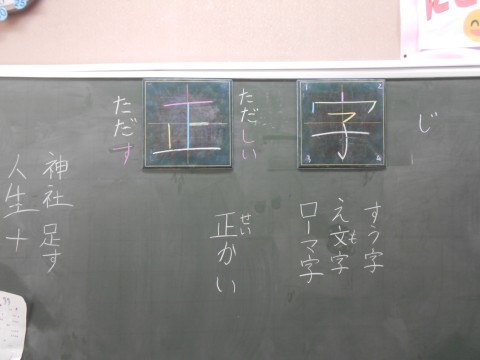 じ
字
すう字
え文字
も
ローマ字
ただしい
正
ただす
せい
正かい
神社 足す
人生 +